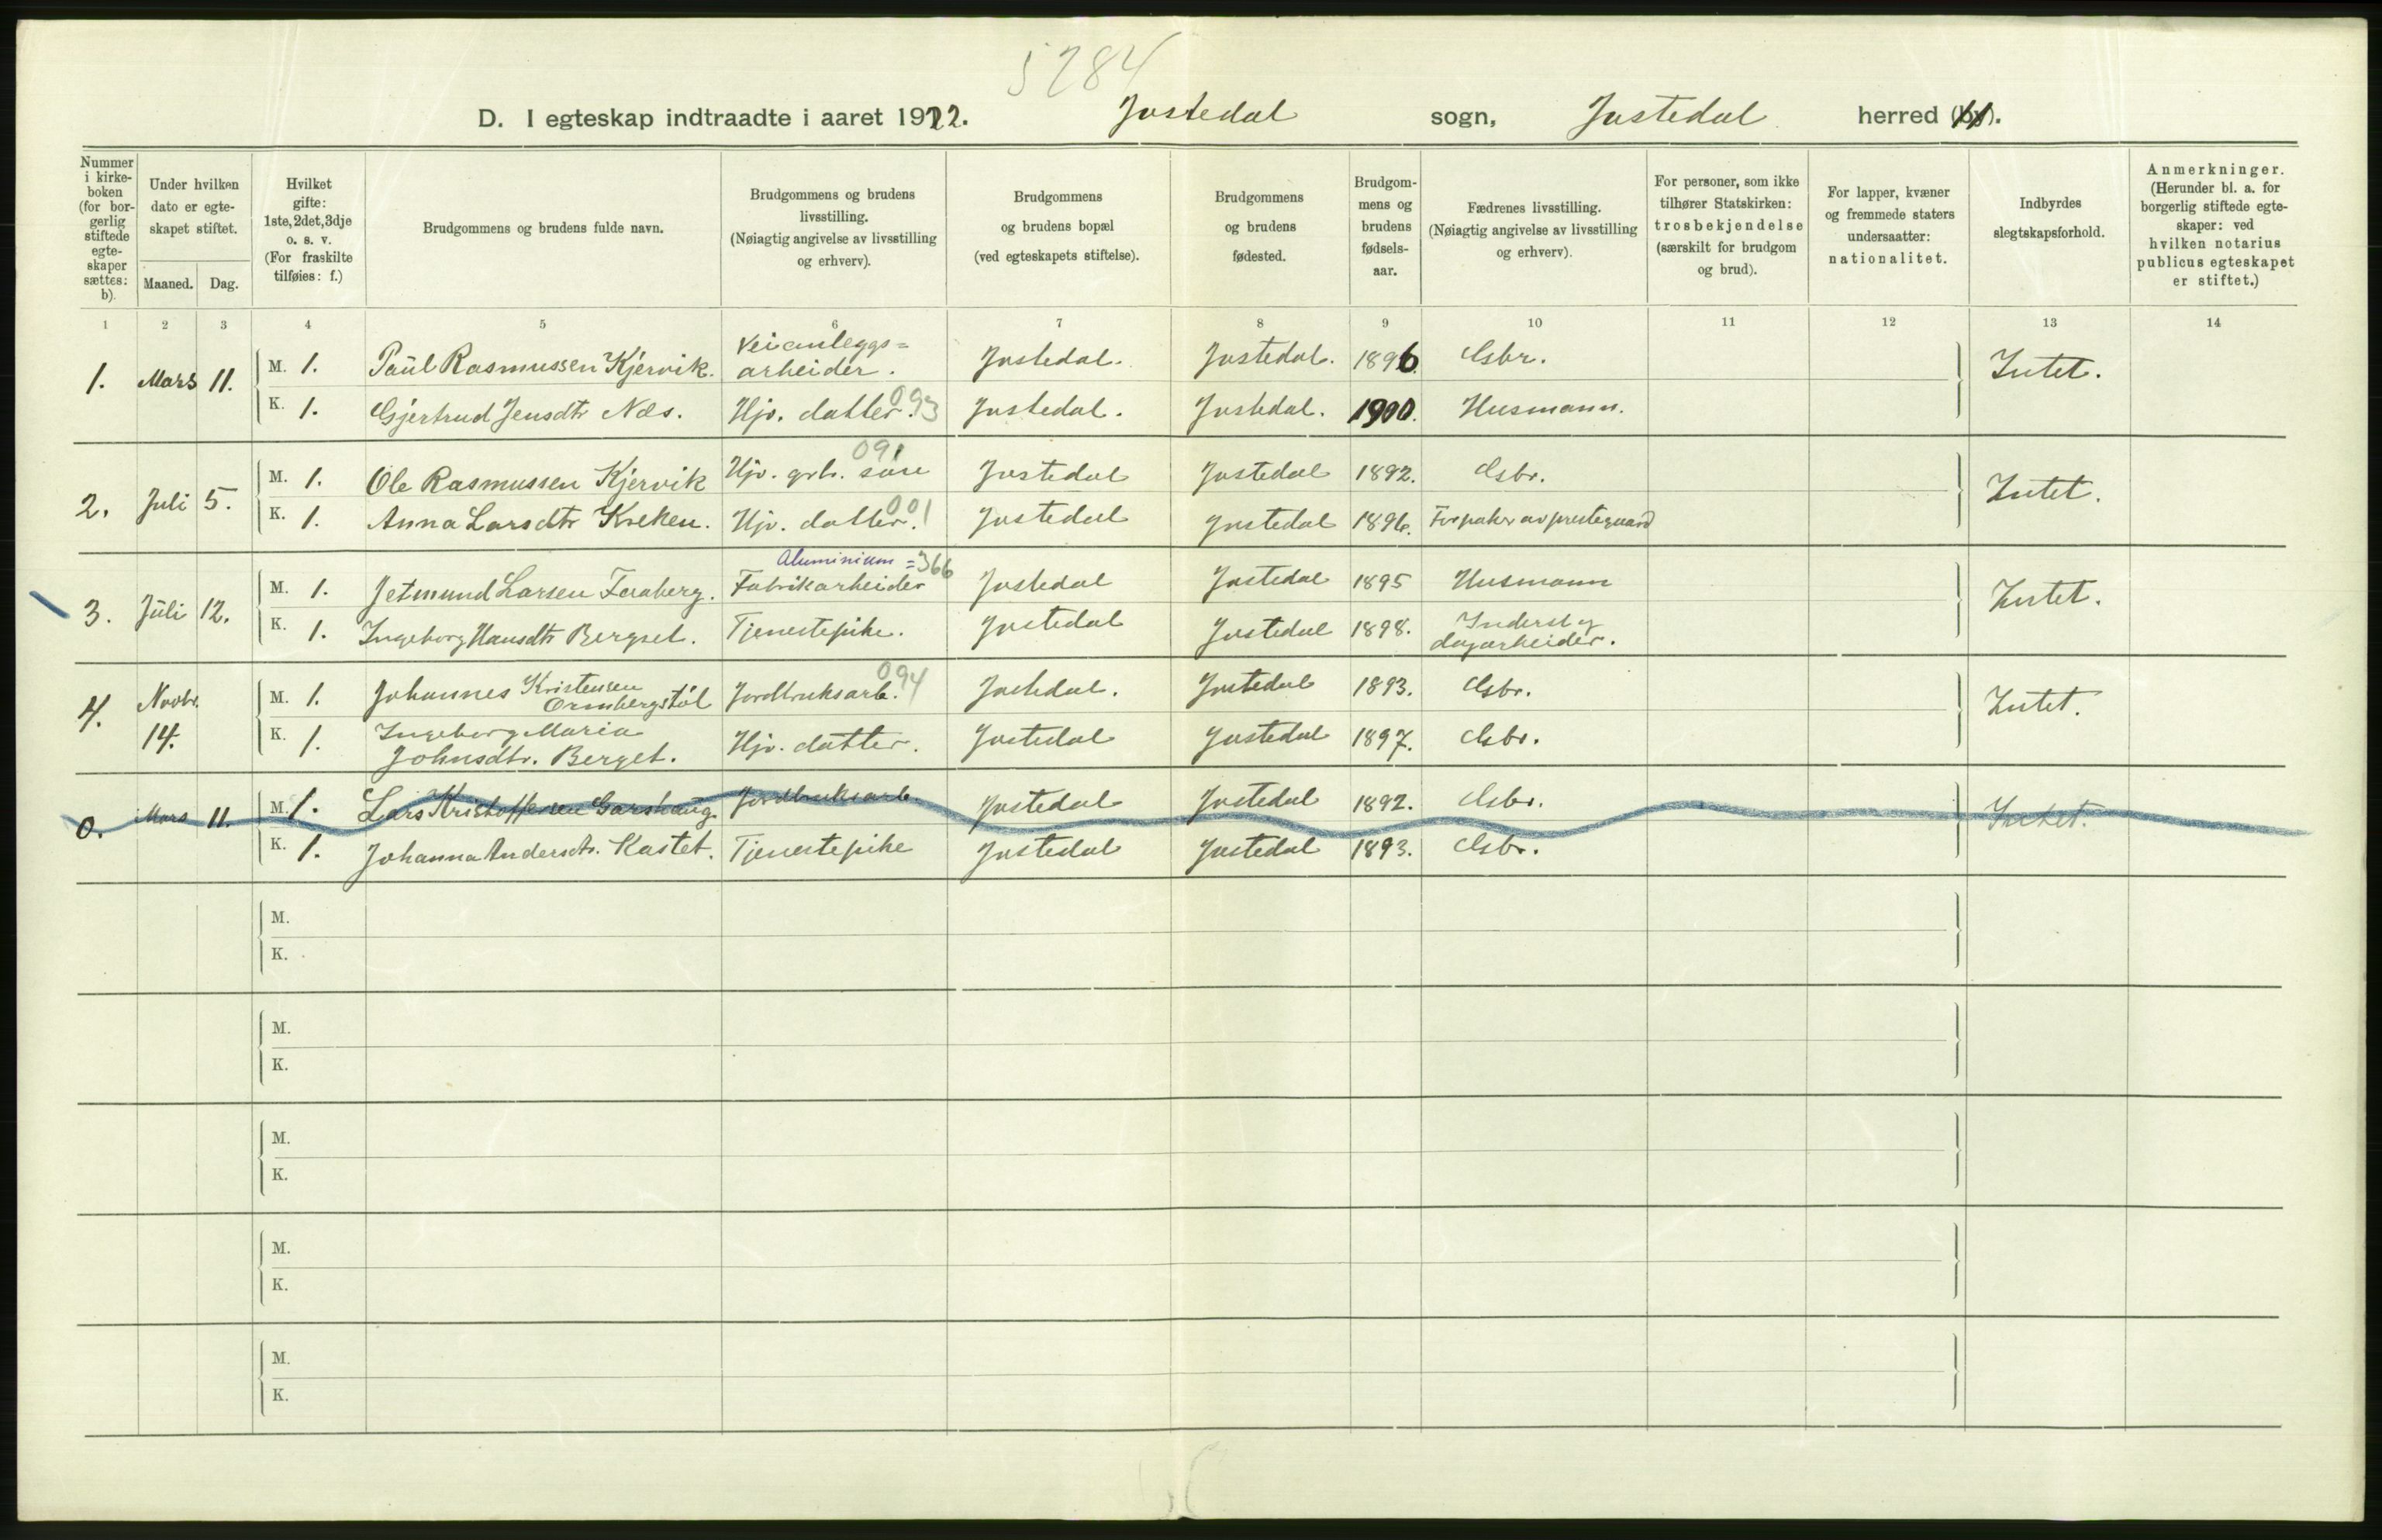 5284
D. I egteskap indtraadte i aaret 1922. Jostedal sogn, Jostedal herred (by).
Nummer i kirkeboken (for borgerlig stiftede egteskaper sættes: b).
Under hvilken dato er egteskapet stiftet.
Maaned. Dag.
Hvilket gifte: 1ste, 2det, 3dje o. s. v. (For fraskilte tilføies: f.)
Brudgommens og brudens fulde navn.
Brudgommens og brudens livsstilling. (Nøiagtig angivelse av livsstilling og erhverv).
Brudgommens og brudens bopæl (ved egteskapets stiftelse).
Brudgommens og brudens fødested.
Brudgommens og brudens fødselsaar.
Fædrenes livsstilling. (Nøiagtig angivelse av livsstilling og erhverv).
For personer, som ikke tilhører Statskirken: trosbekjendelse (særskilt for brudgom og brud).
For lapper, kvæner og fremmede staters undersaatter: nationalitet.
Indbyrdes slegtskapsforhold.
Anmerkninger. (Herunder bl. a. for borgerlig stiftede egteskaper: ved hvilken notarius publicus egteskapet er stiftet.)
1 2 3 4 5 6 7 8 9 10 11 12 13 14
1. Mars 11. M. 1. Paul Rasmussen Kjervik. Veianleggs=arbeider. Jostedal. Jostedal. 1896. Gbr. Intet.
K. 1. Gjertrud Jensdtr Næs. Hjv. datter. 093 Jostedal. Jostedal. 1900. Husmann.
2. Juli 5. M. 1. Ole Rasmussen Kjervik Hjv. grb. søn 091 Jostedal Jostedal 1892. Gbr. Intet.
K. 1. Anna Larsdtr Kreken. Hjv. datter. 001 Jostedal Jostedal 1896. Forpakr av prestegaard
Aluminium = 366
3. Juli 12. M. 1. Jetmund Larsen Faaberg. Fabrikarbeider Jostedal Jostedal 1895 Husmann Intet.
K. 1. Ingeborg Hansdtr Bergset. Tjenestepike. Jostedal Jostedal 1898. Inderst og dagarbeider.
4. Novbr. 14. M. 1. Johannes Kristensen Ormbergstøl Jordbruksarb. 094 Jostedal. Jostedal 1893. Gbr. Intet.
K. 1. Ingeborg Maria Johnsdtr. Berget. Hjv. datter. Jostedal Jostedal 1897. Gbr.
0. Mars 11. M. 1. Lars Kristoffersen Garshaug. Jordbruksarb. Jostedal Jostedal 1892. Gbr. Intet.
K. 1. Johanna Andersdtr. Kastet. Tjenestepike Jostedal Jostedal 1893. Gbr.
M.
K.
M.
K.
M.
K.
M.
K.
M.
K.